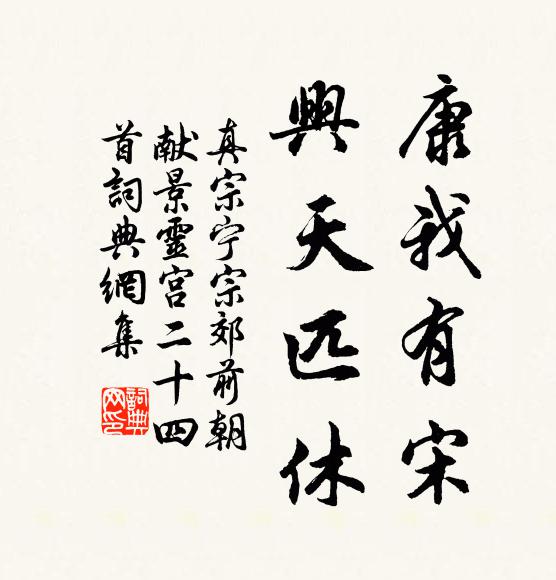 康我有宋
興天匹休
真宗宁宗郊前朝
献景靈宫二十四
首詞典網集
詞典网印